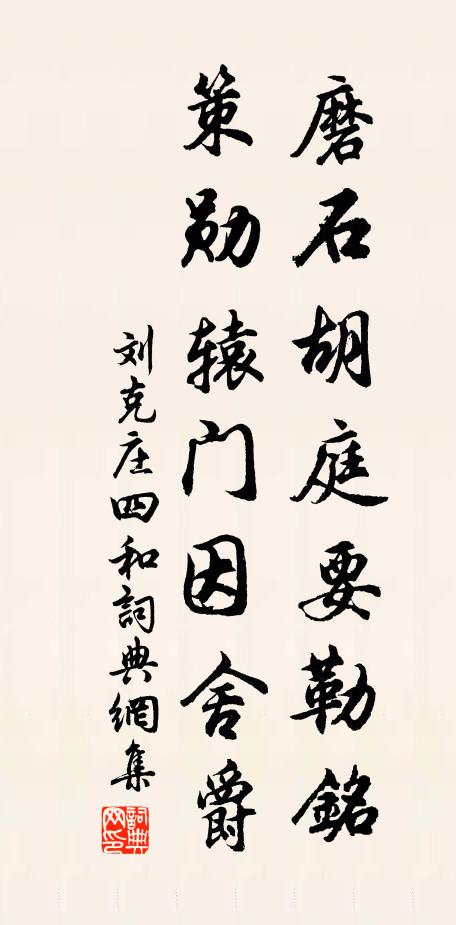 磨石胡庭要勒銘
策勋辕门因舍爵
刘克庄四和詞典網集
詞典网印